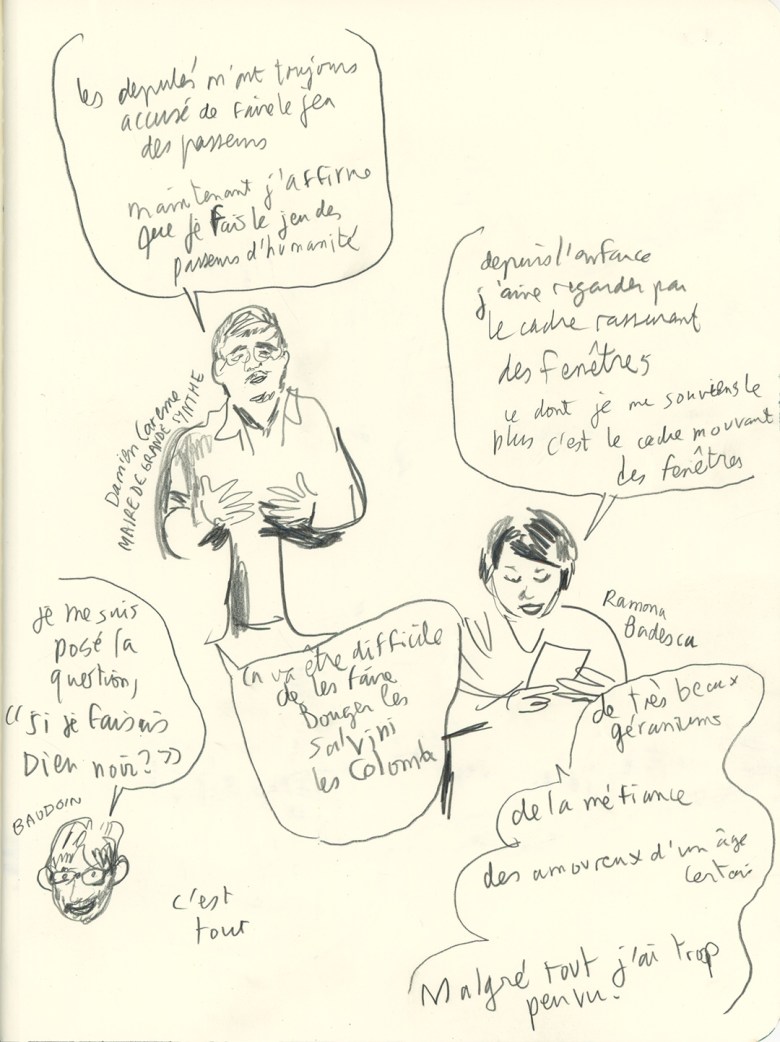 les députés m'ont toujours
accusé de faire le jeu
des passeurs
maintenant j'affirme
que je fais le jeu des
passeurs d'humanité
Damien Careme
MAIRE DE GRANDE SYNTHE
depuis l'enfance
j'aime regarder par
le cadre rassurant
des fenêtres
ce dont je me souviens le
plus c'est le cadre mouvant
des fenêtres
Ramona
Badescu
je me suis
posé la
question,
"si je faisais
Dieu noir?"
BAUDOIN
ça va être difficile
de les faire
Bouger les
Salvini
les Colomb
c'est
tout
de très beaux
géraniums
de la méfiance
des amoureux d'un âge
certain
Malgré tout j'ai trop
peu vu.